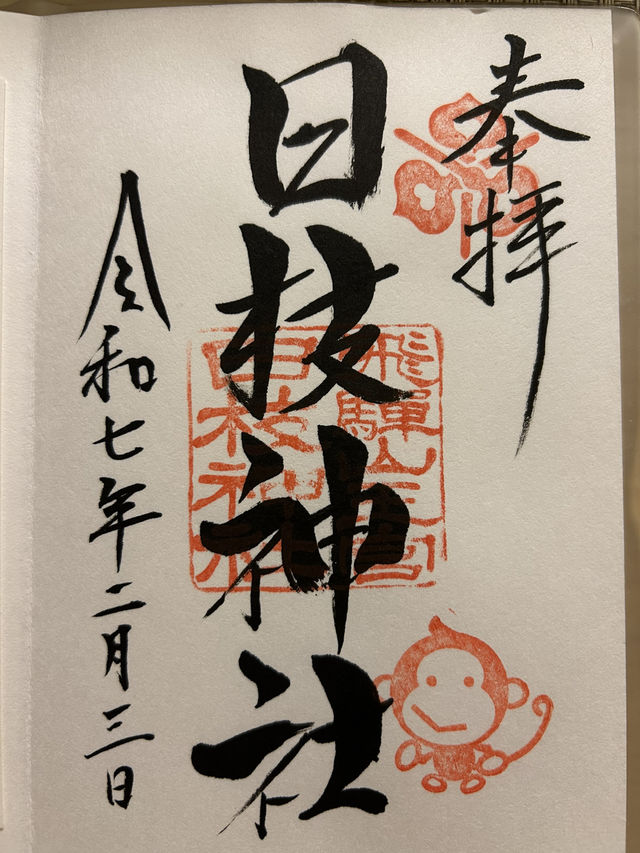 奉拝
日枝神社
飛驒山王宮
日枝神社
令和七年二月三日